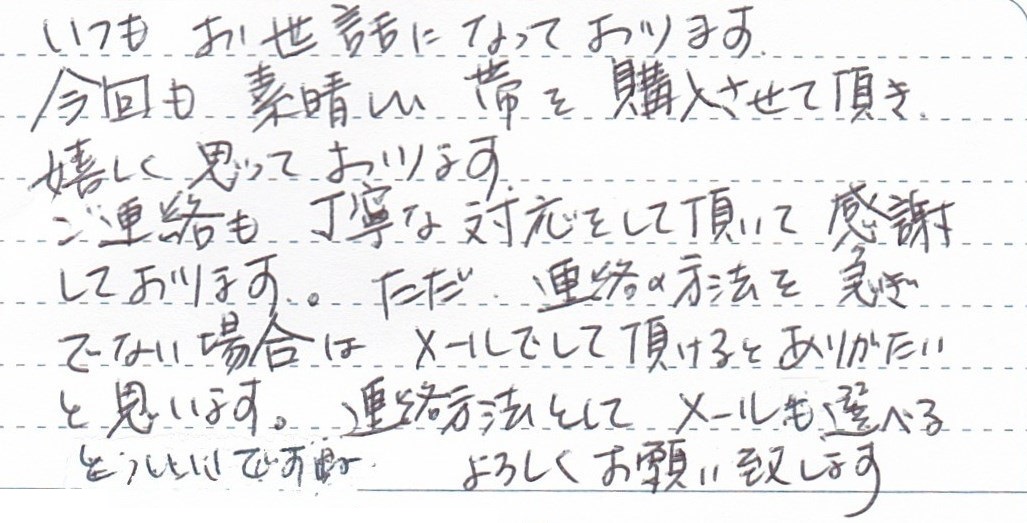 いつも お世話になっております.
今回も 素晴しい 帯を 購入させて頂き
嬉しく 思っております.
ご連絡も 丁寧な 対応をして頂いて 感謝
しております。ただ 連絡の方法を 急ぎ
でない場合は メールでして頂けるとありがたい
と思います。連絡方法として メールも選べる
とうれしいですね. よろしくお願い致します